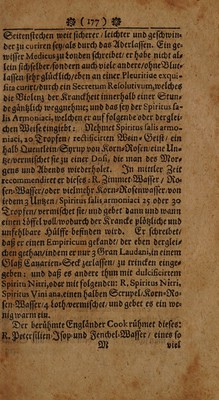 ( 177 )
Seitenstechen weit sicherer / leichter und geschwin-
der zu curiren sey/als durch das Aderlassen. Ein ge-
wisser Medicus zu Londen schreibet / er habe nicht al-
lein sich selber/sondern auch viele andere/ohne Blut-
lassen/sehr glücklich/eben an einer Pleuritide exqui-
sita curirt/durch ein Secretum Resolutivum, welches
die Violenz der Kranckheit innerhalb einer Stun-
de gäntzlich weggenommen; und das sey der Spiritus sa-
lis Armoniaci, welchen er auf folgende oder dergleis-
chen Weise eingiebt: Nehmet Spiritus salis armo-
niaci, 20 Tropffen / rectificirten Wein-Geist / ein
halb Quentlein/Syrup von Korn-Rosen/eine Un-
tze/vermischet sie zu einer Dosi, die man des Mor-
gens und Abends wiederholet. In mittler Zeit
recommendiret er dieses: R. Zimmet-Wasser / Ro-
sen-Wasser/oder vielmehr Korn-Rosenwasser, von
jedem 3 Untzen/Spiritus salis armoniaci 25 oder 30
Tropffen / vermischet sie/und gebet dann und wann
einen Löffel voll/wodurch der Krancke plötzliche und
unfehlbare Hülffe befinden wird. Er schreibet/
daß er einen Empiricum gekandt/der eben dergleis-
chen gethan/indem er nur 3 Gran Laudani, in einem
Glaß Canarien-Sect zerlassen/ zu trincken einge
geben: und daß es andere thun mit dulcificirtem
Spiritu Nitri, oder mit folgendem R. Spiritus Nitri,
Spiritus Vini ana, einen halben Scrupel/Korn-Ro-
sen-Wasser/4 Loth/vermischet/ und gebet es ein we-
nig warm ein.
Der berühmte Engländer Cook rühmet dieses:
R. Petersilien-Isop und Fenchel-Wasser / eines so
M viel